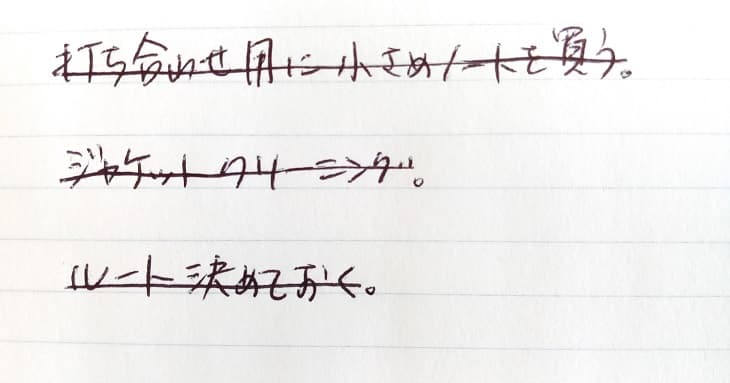 打ち合わせ用に小さめノートを買う。
ジャケットクリーニング。
ルート決めておく。